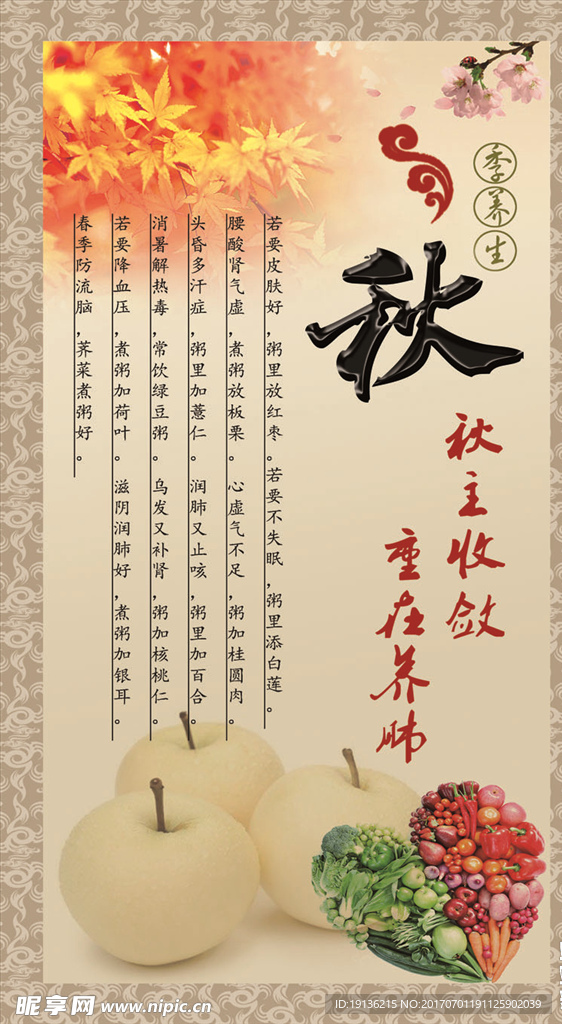 季养生
秋
秋主收敛
重在养肺
若要皮肤好,粥里放红枣。若要不失眠,粥里添白莲。
腰酸肾气虚,煮粥放板栗。心虚气不足,粥加桂圆肉。
头昏多汗症,粥里加薏仁。润肺又止咳,粥里加百合。
消暑解热毒,常饮绿豆粥。乌发又补肾,粥加核桃仁。
若要降血压,煮粥加荷叶。滋阴润肺好,煮粥加银耳。
春季防流脑,荠菜煮粥好。
昵享网 www.nipic.cn
ID:19136215 NO:20170701191125902039